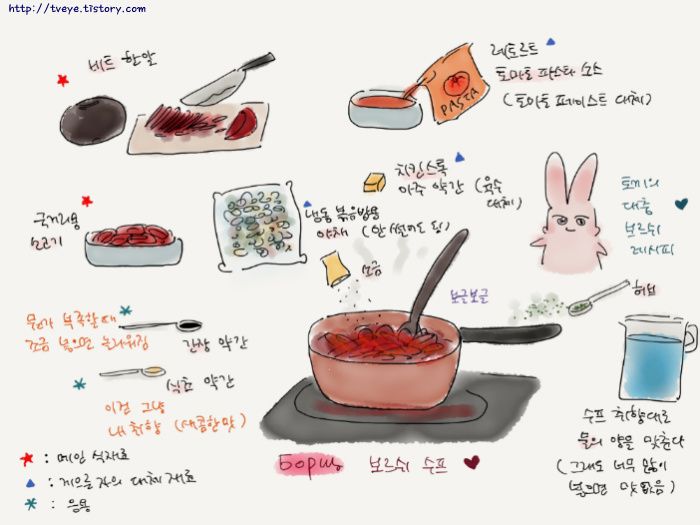 http://tveye.tistory.com
비트 한알
레토르트
토마토 파스타 소스
(토마토 페이스트 대체)
PASTA
치킨스톡
아주 약간 (육수
대체)
토끼의
대충
보르쉬
레시피
국거리용
소고기
냉동 볶음밥용
야채 (안 썰어도 됨)
소금
보글보글
허브
뭔가 부족할때
조금 넣으면 놀라워짐
간장 약간
식초 약간
이건 그냥
내 취향 (새콤한맛)
수프 취향대로
물의 양을 맞춘다
(그래도 너무 많이
넣으면 맛없음)
: 메인 식재료
: 게으른 자의 대체 재료
: 응용
борщ 보르쉬 수프